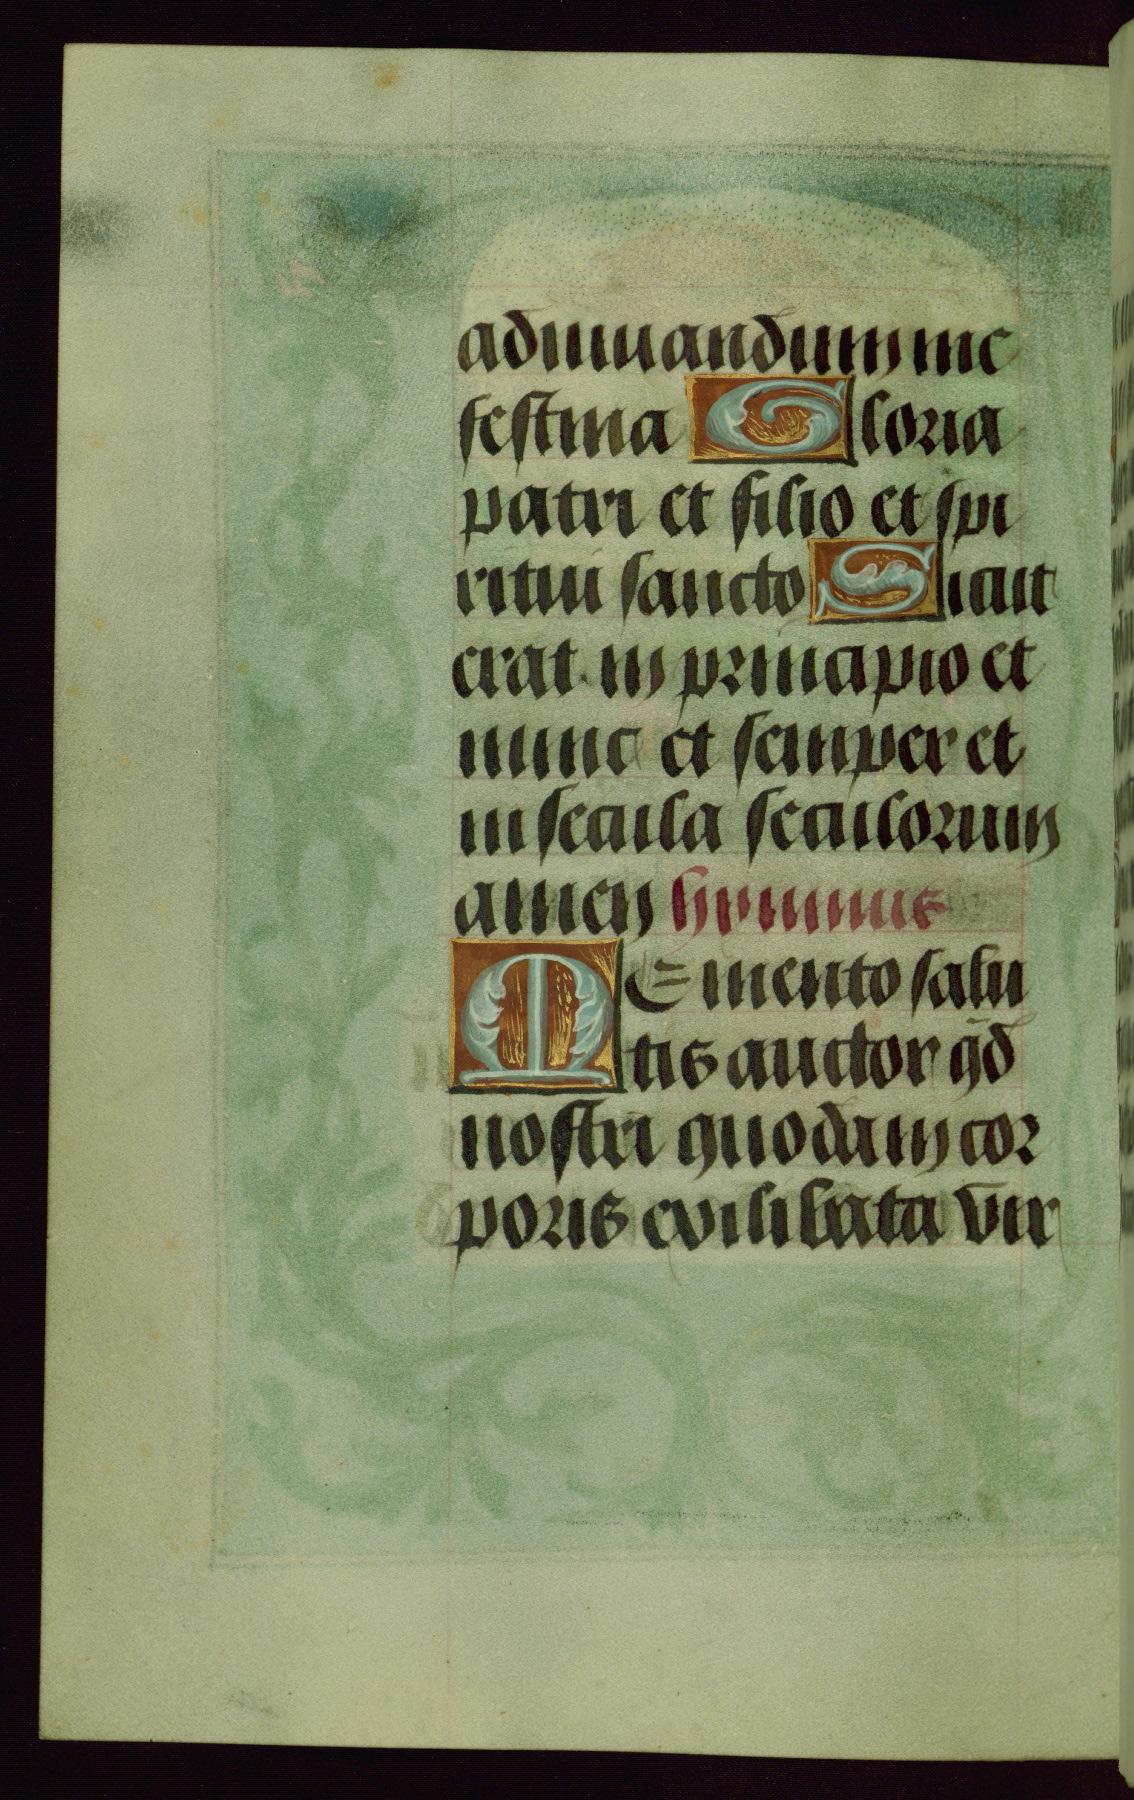 adiuuandum me
festina Gloria
patri et filio et spi
ritui sancto Sicut
erat in principio et
nunc et semper et
in secula seculorum
amen hymnus
Memento salu
tis auctor qd̄
nostri quondam cor
poris ex ilibata vir